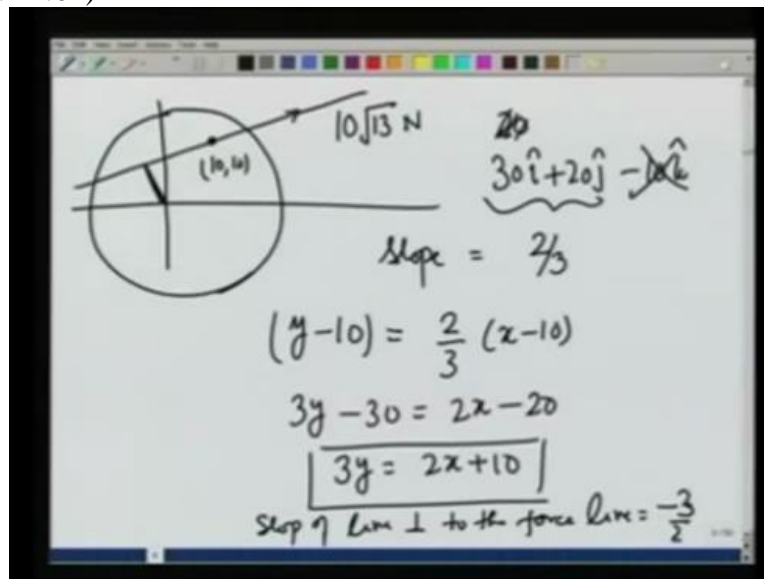 10√13 N
(10,10)
30î+20ĵ -10k̂
slope = 2/3
(y-10) = 2/3 (x-10)
3y-30 = 2x-20
3y = 2x+10
Slop of line ⊥ to the force line = -3/2